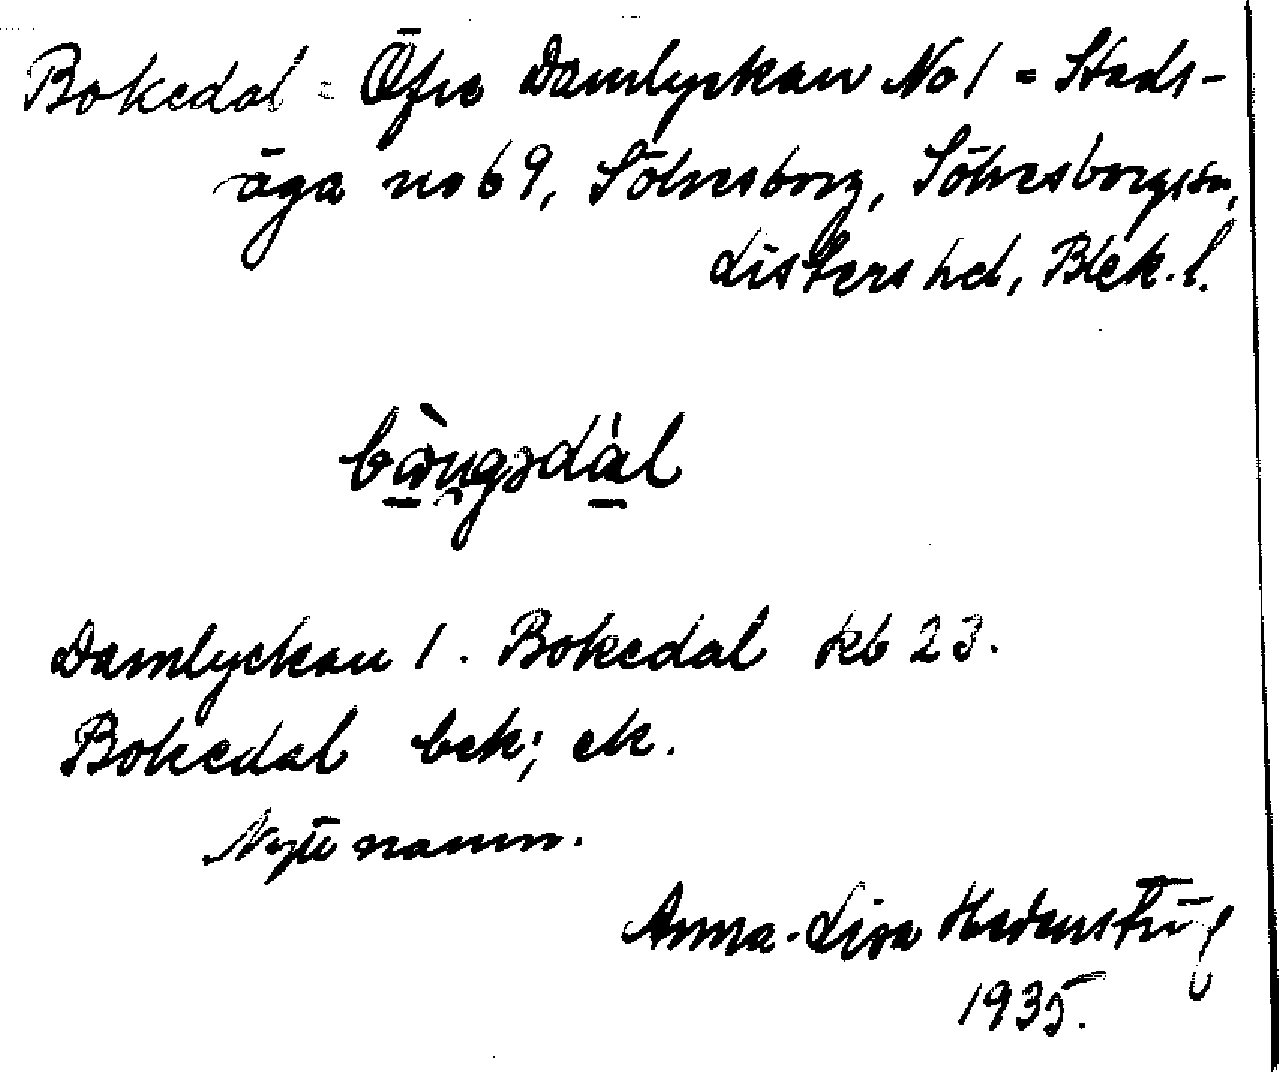 Bokedal = Öfre Damlyckan No 1 = Stads-
äga no 69, Sölvesborg, Sölvesborgs sn,
Listers hd, Blek. l.
Damlyckan 1. Bokedal kb 23.
Bokedal bek; ek.
Nytt namn.
Anna-Lisa
1935.